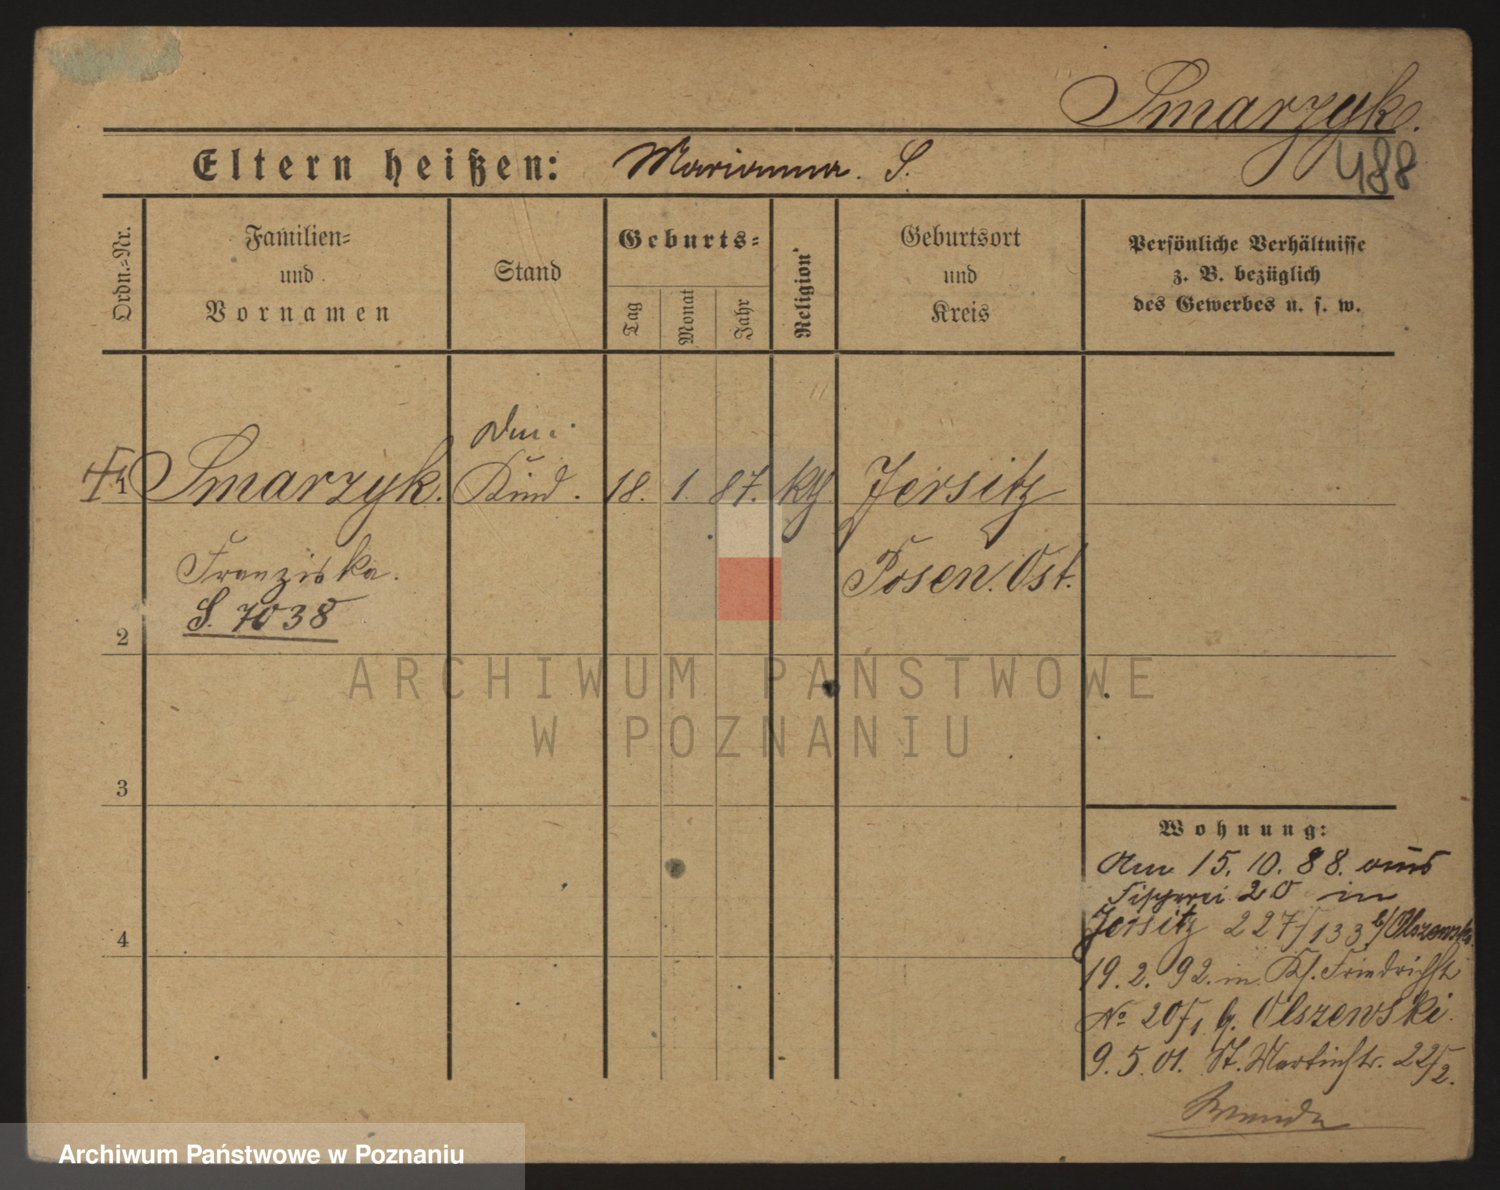 Smarzyk.
488
Eltern heißen: Marianna. S.
Ordn.-Nr.
Familien-
und
Vornamen
Stand
Geburts-
Tag
Monat
Jahr
Religion
Geburtsort
und
Kreis
Persönliche Verhältnisse
z. B. bezüglich
des Gewerbes u. s. w.
1 Smarzyk. Kind. 18. 1. 87. kth Jersitz
Franziska. Posen. Ost.
S. 7038
2
3
4
Wohnung:
Am 15. 10. 88. aus
Fischerei 20 in
Jersitz 227/133 b/Olszewski
19. 2. 92. in Kl. Friedrichst
No 20/1 b. Olszewski.
9. 5. 01. St. Martinstr. 22/2.
ARCHIWUM PAŃSTWOWE
W POZNANIU
Archiwum Państwowe w Poznaniu